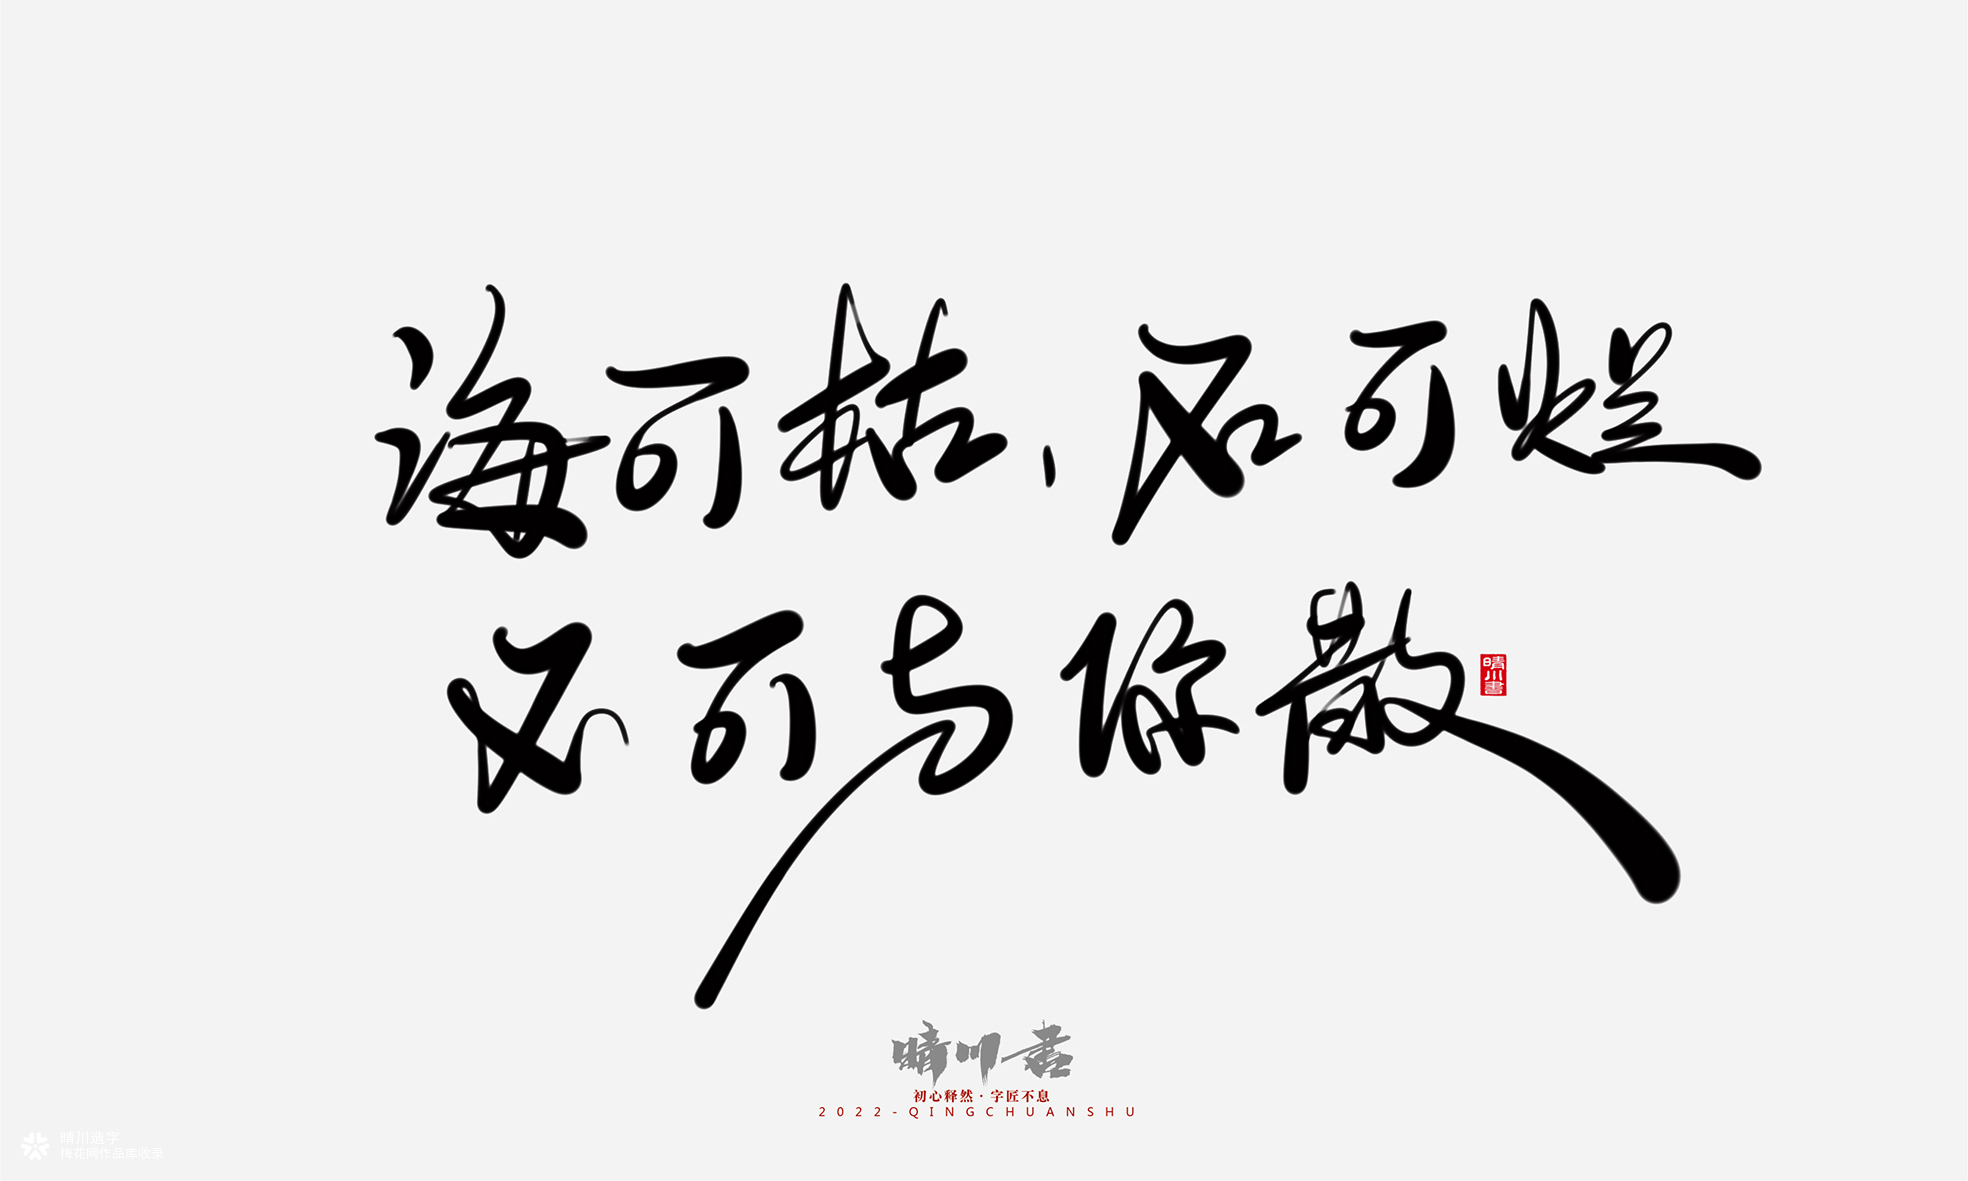 海可枯、石可烂
不可与你散
晴川書
晴川書
初心释然·字匠不息
2022-QINGCHUANSHU
晴川造字
梅花网作品库收录